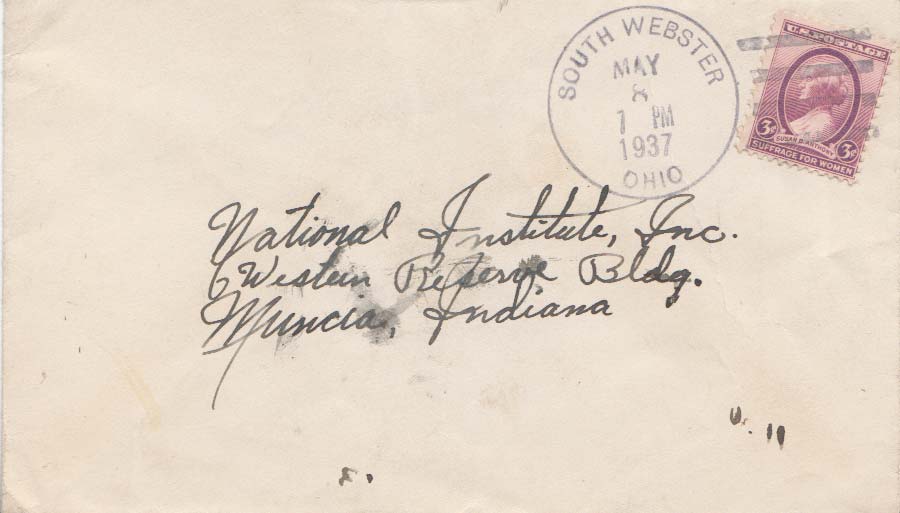 SOUTH WEBSTER
MAY
8
1 PM
1937
OHIO
U.S. POSTAGE
3¢ SUSAN B. ANTHONY 3¢
SUFFRAGE FOR WOMEN
National Institute, Inc.
6 Western Reserve Bldg.
Muncia, Indiana